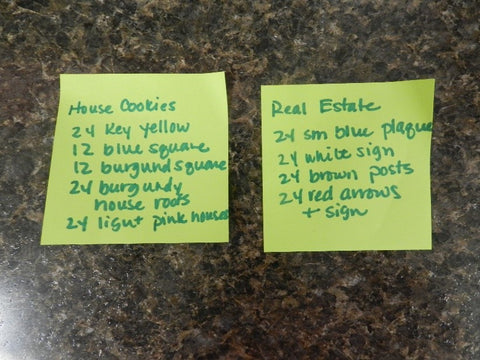 House Cookies
24 Key yellow
12 blue square
12 burgund square
24 burgundy
house roofs
24 light pink houses
Real Estate
24 sm blue plaque
24 white sign
24 brown posts
24 red arrows
+ sign